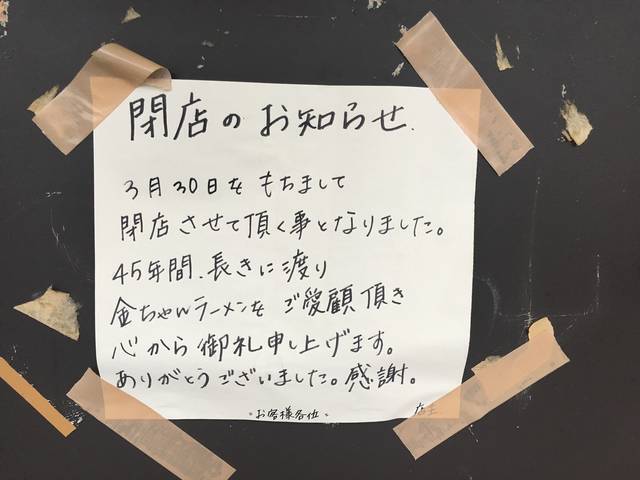 閉店のお知らせ.
3月30日をもちまして
閉店させて頂く事となりました。
45年間、長きに渡り
金ちゃんラーメンをご愛顧頂き
心から御礼申し上げます。
ありがとうございました。感謝。
・お客様各位・ 店主